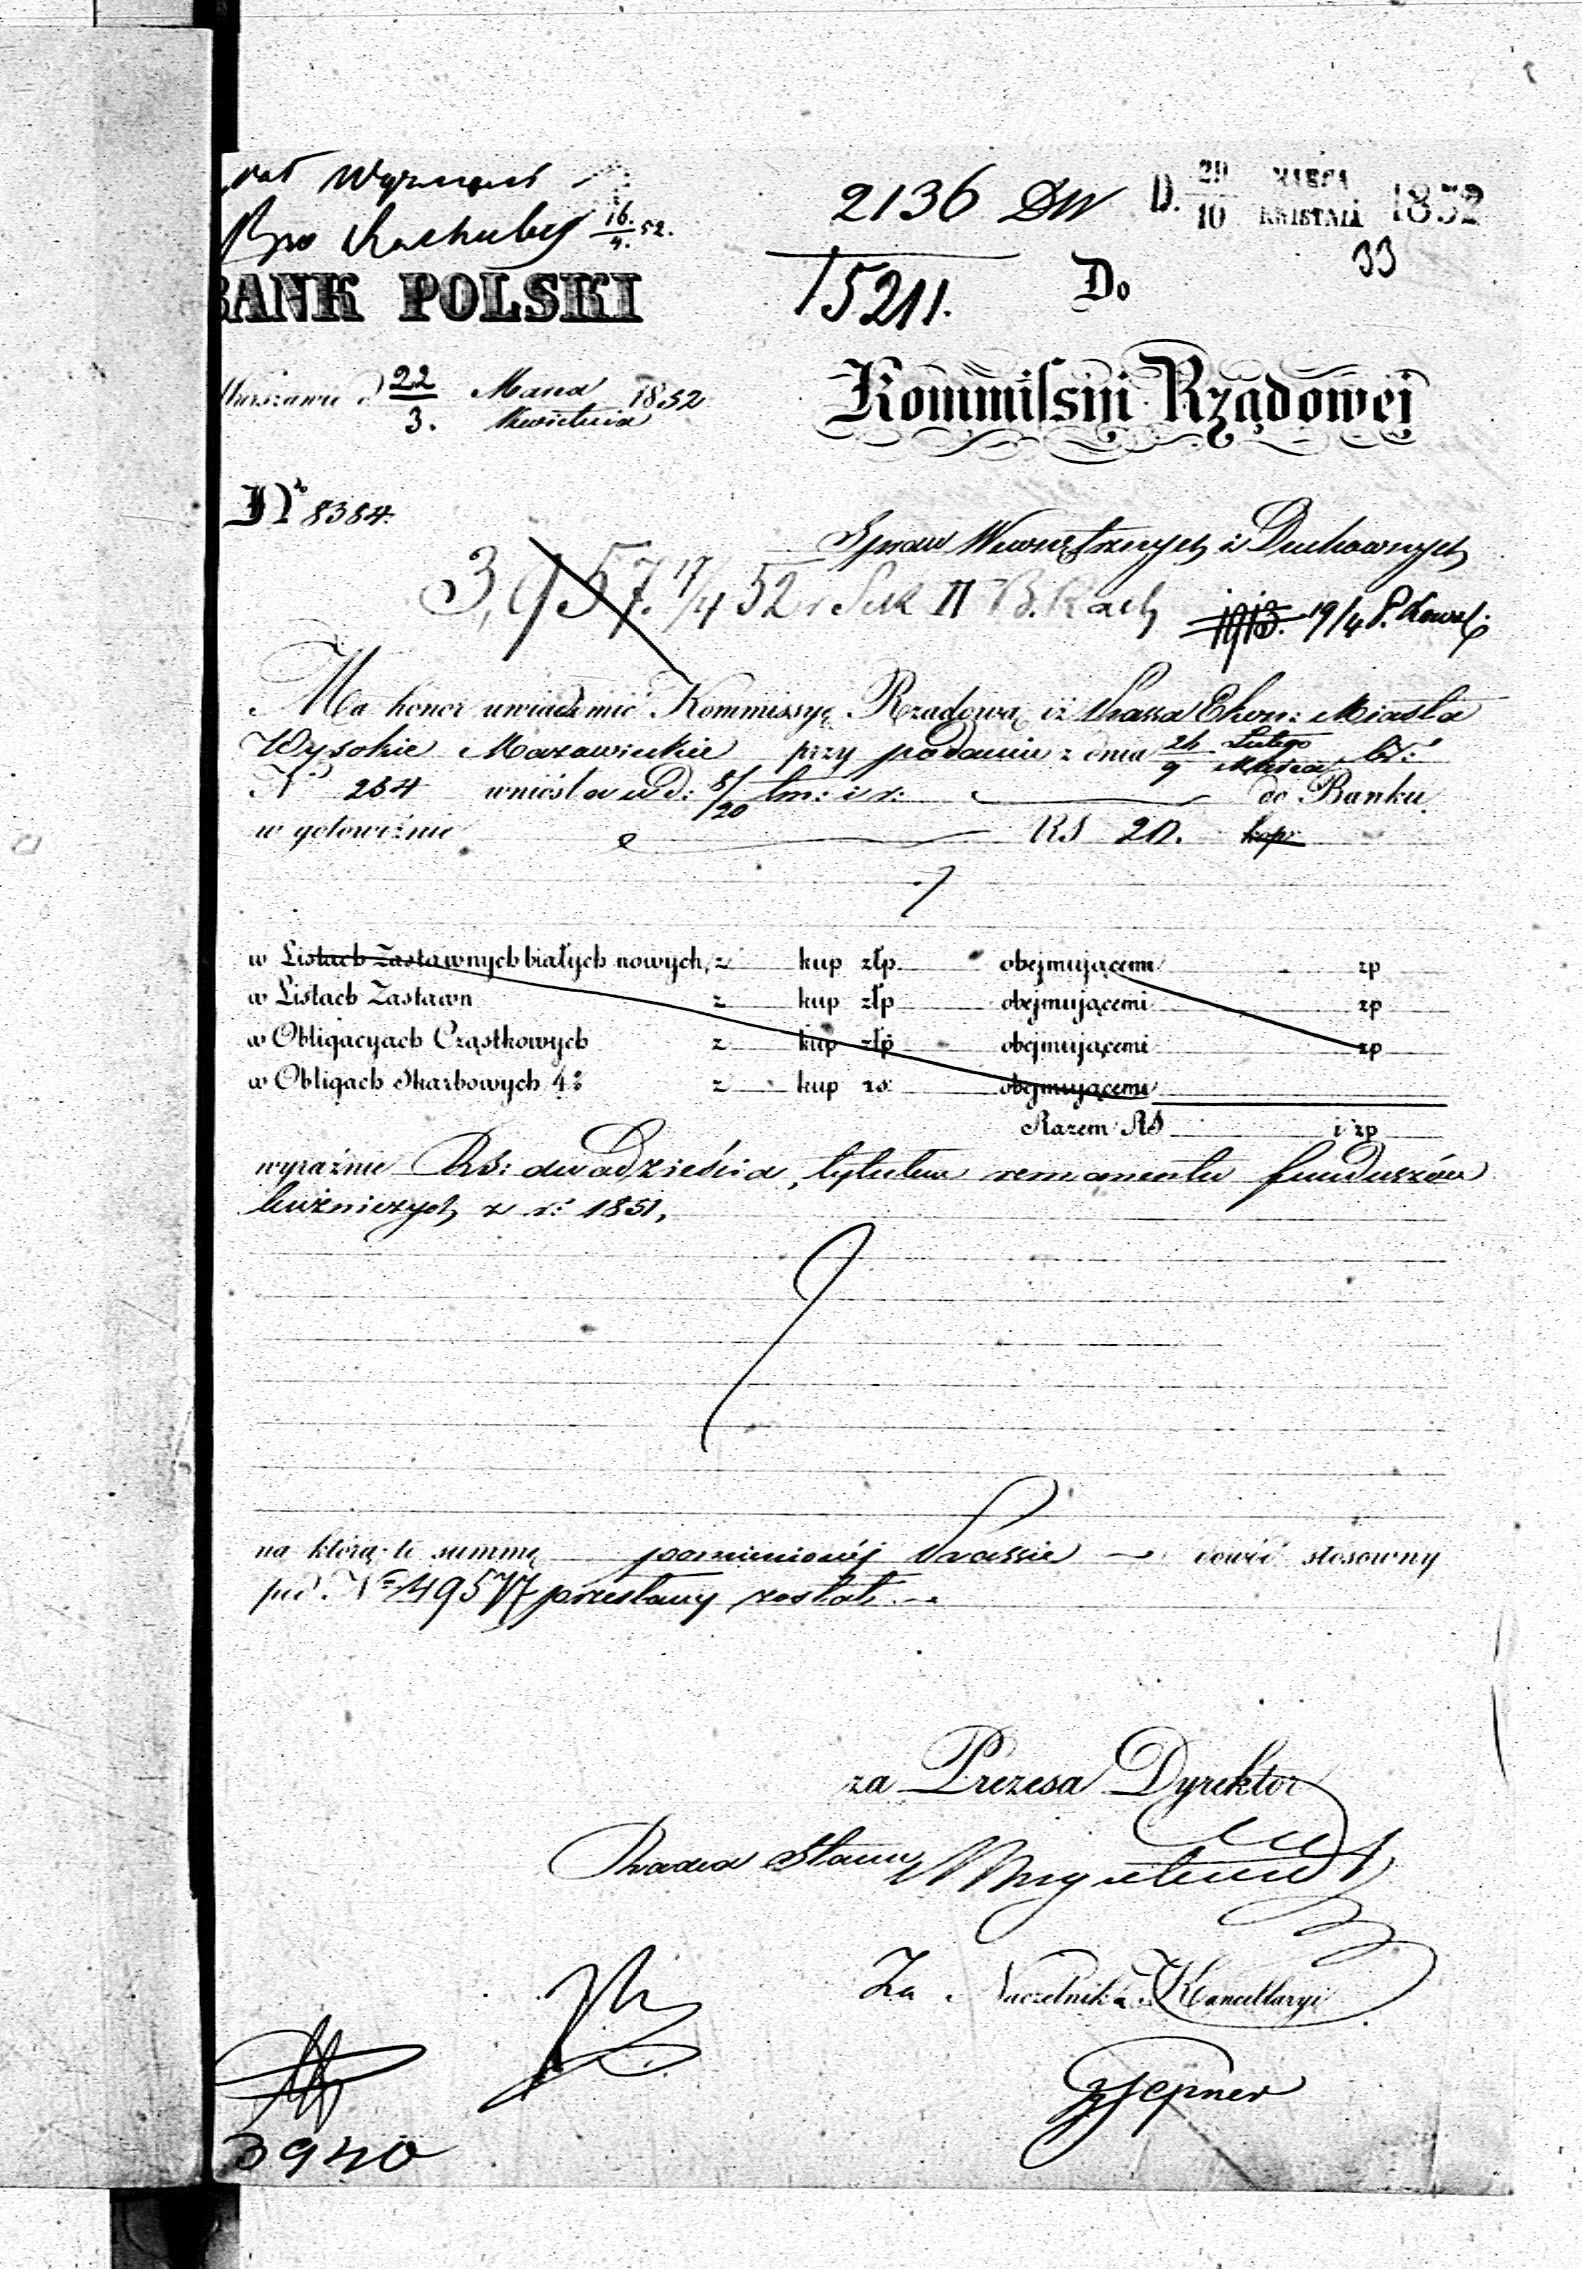 2136 DW D. 29/10 MARCA KWIETNIA 1852
33
16/4 52.
BANK POLSKI
15211. Do
Warszawie d 22/3. Marca Kwietnia 1852
Kommissyi Rządowej
No 8384.
Spraw Wewnętrznych i Duchownych
3,957. 17/4 52 Sek II B. Rach 19/4 P. Kowal.
Ma honor uwiadomić Kommissyę Rządową iż Kassa Ekon: Miasta
Wysokie Mazowieckie przy podaniu z dnia 26/9 Lutego Marca br:
No 254 wniosła w d: 8/20 tm: i r: do Banku
w gotowiźnie RS 20. kop:
w Listach Zastawnych białych nowych, z kup złp. obejmującemi zp
w Listach Zastawn z kup złp obejmującemi zp
w Obligacyach Cząstkowych z kup złp obejmującemi zp
w Obligach Skarbowych 4% z kup rs: obejmującemi
Razem RS i zp
wyraźnie RS: dwadzieścia, tytułem remanentu funduszów
kuźniczych z r: 1851,
na którą to summę pomienionéj Kassie dowód stosowny
pod No 49577 przesłany został.
za Prezesa Dyrektor
Radca Stanu
Za Naczelnika Kancellaryi
3940